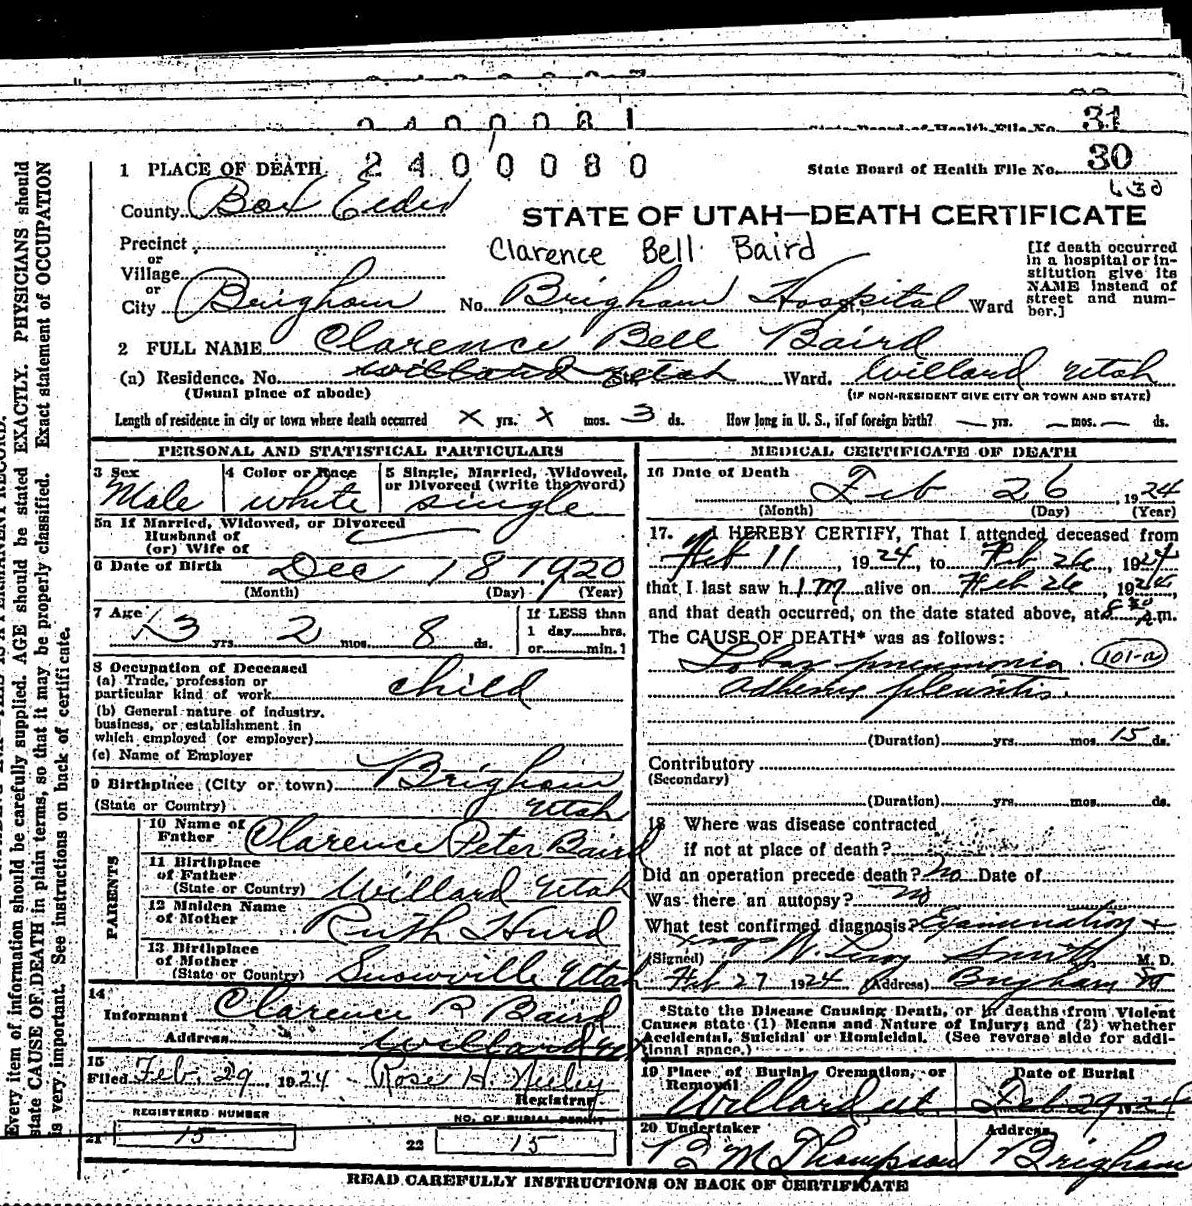 2400081
State Board of Health File No. 31
1 PLACE OF DEATH 2400080
State Board of Health File No. 30
County Box Elder
STATE OF UTAH—DEATH CERTIFICATE
Precinct
or
Village
or
City Brigham No. Brigham Hospital St., Ward
Clarence Bell Baird
[If death occurred in a hospital or institution give its NAME instead of street and number.]
2 FULL NAME Clarence Bell Baird
(a) Residence. No. Willard Utah St. Ward. Willard Utah
(Usual place of abode) (IF NON-RESIDENT GIVE CITY OR TOWN AND STATE)
Length of residence in city or town where death occurred x yrs. x mos. 3 ds. How long in U. S., if of foreign birth? — yrs. — mos. — ds.
PERSONAL AND STATISTICAL PARTICULARS
3 Sex Male
4 Color or Race white
5 Single, Married, Widowed, or Divorced (write the word) single
5a If Married, Widowed, or Divorced
Husband of
(or) Wife of
6 Date of Birth Dec 18 1920
(Month) (Day) (Year)
7 Age 3 yrs. 2 mos. 8 ds.
If LESS than
1 day......hrs.
or......min.?
8 Occupation of Deceased
(a) Trade, profession or
particular kind of work child
(b) General nature of industry,
business, or establishment in
which employed (or employer)
(c) Name of Employer
9 Birthplace (City or town) Brigham
(State or Country) Utah
PARENTS
10 Name of Father Clarence Peter Baird
11 Birthplace of Father (State or Country) Willard Utah
12 Maiden Name of Mother Ruth Hurd
13 Birthplace of Mother (State or Country) Snowville Utah
14
Informant Clarence P Baird
Address Willard Ut
15
Filed Feb. 29 1924 Rose H. Neeley
Registrar
REGISTERED NUMBER
21 15
NO. OF BURIAL PERMIT
22 15
MEDICAL CERTIFICATE OF DEATH
16 Date of Death Feb 26, 1924
(Month) (Day) (Year)
17. I HEREBY CERTIFY, That I attended deceased from
Feb 11, 1924, to Feb 26, 1924,
that I last saw him alive on Feb 26, 1924,
and that death occurred, on the date stated above, at 8 30 p.m.
The CAUSE OF DEATH* was as follows:
Lobar pneumonia 101-a
Adhesive pleuritis
(Duration) yrs. mos. 15 ds.
Contributory
(Secondary)
(Duration) yrs. mos. ds.
18 Where was disease contracted
if not at place of death?
Did an operation precede death? No Date of
Was there an autopsy? No
What test confirmed diagnosis? Examination +
(Signed) W. Leroy Smith M. D.
Feb 27 1924 (Address) Brigham
*State the Disease Causing Death, or in deaths from Violent
Causes state (1) Means and Nature of Injury; and (2) whether
Accidental, Suicidal or Homicidal. (See reverse side for addi-
tional space.)
19 Place of Burial, Cremation, or Removal Willard ut
Date of Burial Feb 29 1924
20 Undertaker B M Thompson
Address Brigham
READ CAREFULLY INSTRUCTIONS ON BACK OF CERTIFICATE
Every item of information should be carefully supplied. AGE should be stated EXACTLY. PHYSICIANS should
state CAUSE OF DEATH in plain terms, so that it may be properly classified. Exact statement of OCCUPATION
is very important. See instructions on back of certificate.